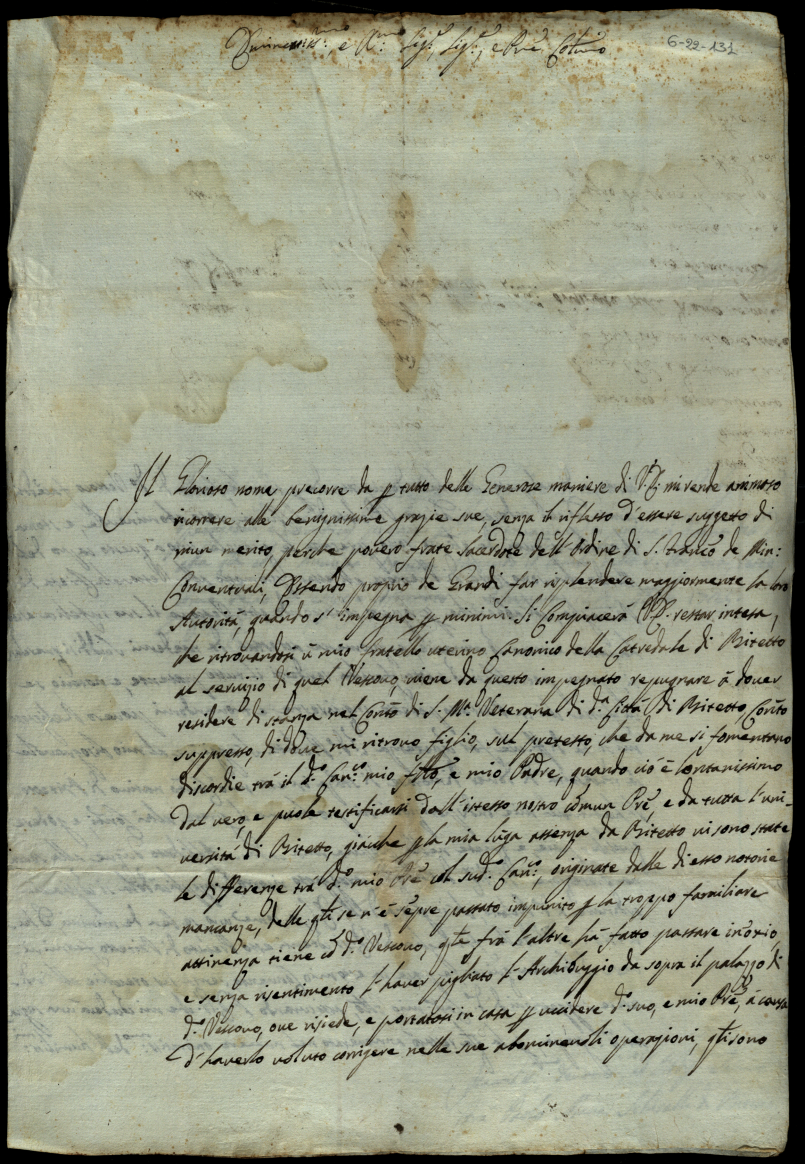 Eminentissmo e Rmo Sigre, Sigre, e Prone Colmo
6-22-131
Il Glorioso nome precorre da p tutto delle Generose maniere di V: E: mi rende animoso
ricorrere alle benignissime grazie sue, senza il riflesso d'essere suggetto di
niun merito, perche povero frate Sacerdote dell'Ordine di S. Franco de Min:
Conventuali, Essendo proprio de Grandi far risplendere maggiormente la loro
Autorità, quando s'impegna p minimi. Si Compiacerà V: E: restar intesa,
che ritrovandosi ũ mio fratello uterino Canonico della Catredale di Bitetto
al servizio di quel Vescovo, viene da questo impegnato repugnare à dover
residere di stanza nel Conto di S. Ma Veterana di da Città di Bitetto, Conto
suppresso, di dove mi ritrovo figlio, sul pretesto, che da me si fomentano
discordie trà il do Canco mio fllo, e mio Padre, quando ciò è lontanissimo
dal vero, e puole testificarsi dall'istesso nostro comun Prẽ, e da tutta l'uni-
versità di Bitetto, giache p la mia luga assenza da Bitetto vi sono state
le differenze trà do mio Prẽ col sudo Canco, originate dalle di esso notorie
mancanze, delle qli se n'è sẽpre passato impunito p la troppo familiare
attinenza tiene cõ do Vescovo, qle frà l'altre hà fatto passare in orio,
e senza risentimento l'haver pigliato l'Archibuggio da sopra il palazzo di
do Vescovo, ove risiede, e portatosi in casa p uccidere do suo, e mio Prẽ, à causa
d'haverlo voluto corrigere nelle sue abominevoli operazioni, qli sono